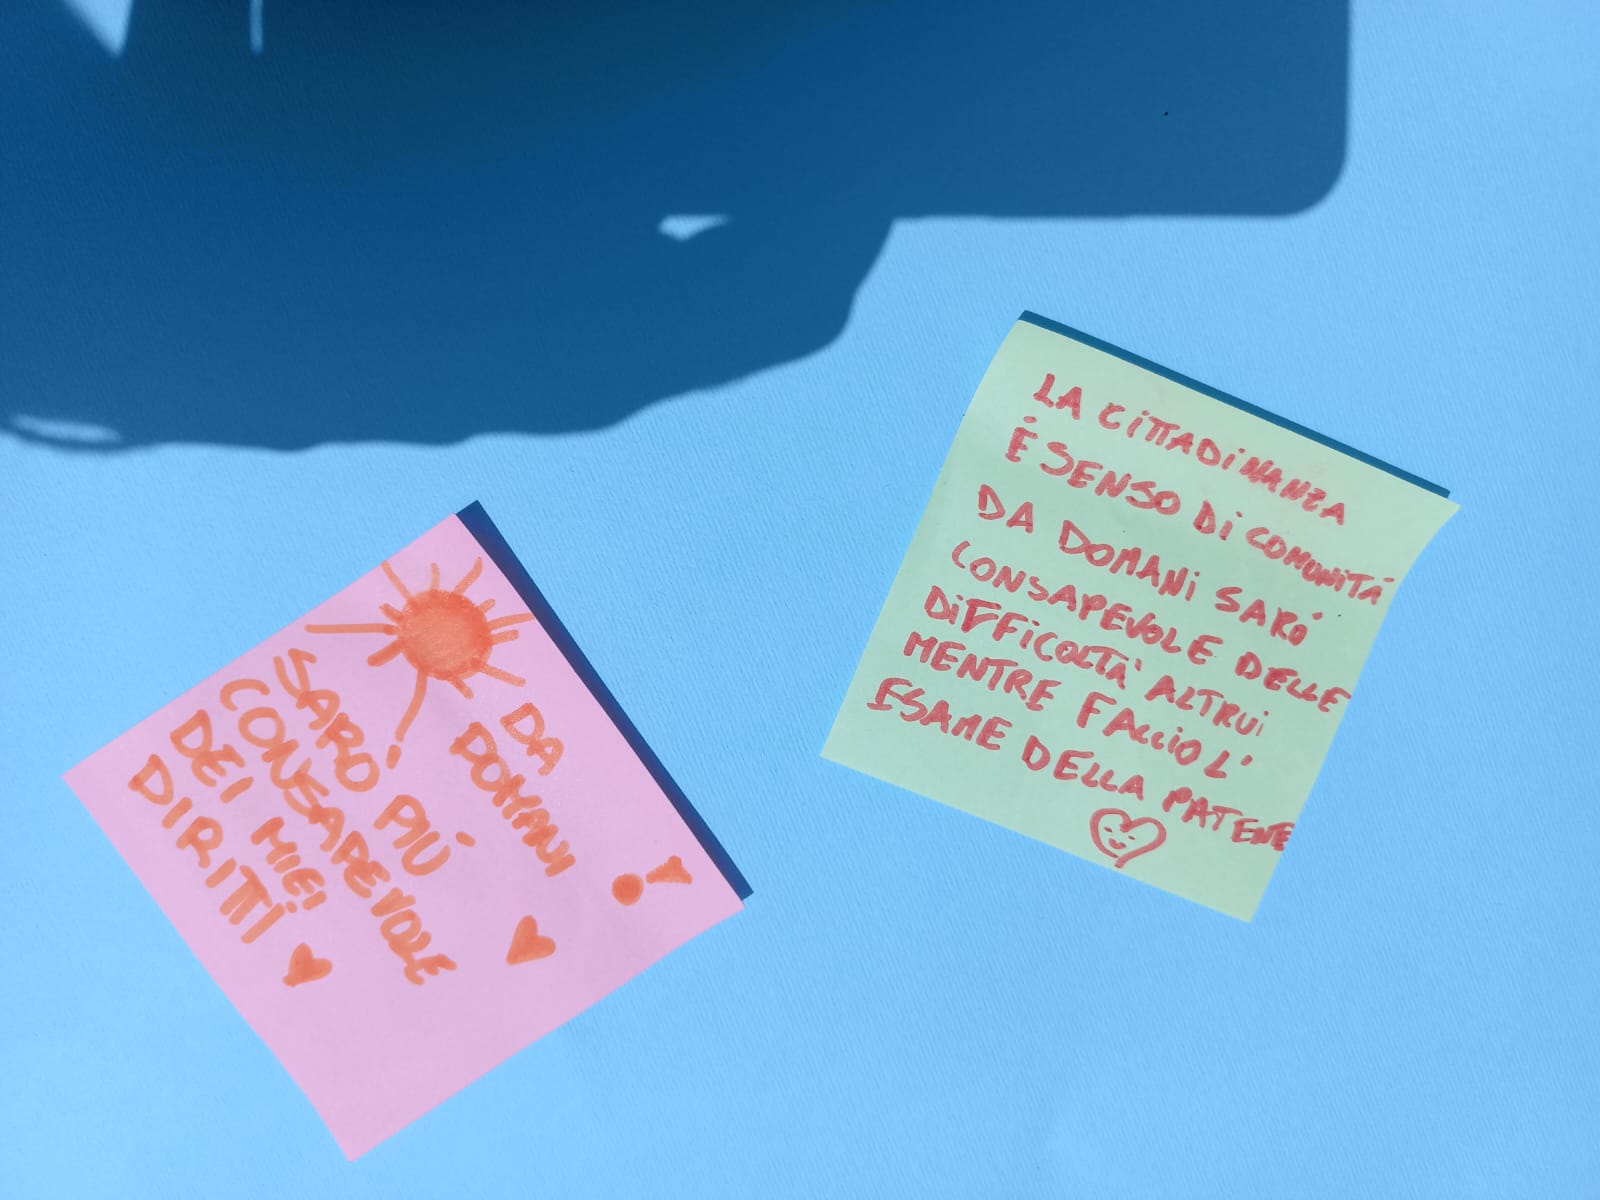 DA
DOMANI
SARO PIÚ
CONSAPEVOLE
DEI MIEI
DIRITTI
!
LA CITTADINANZA
É SENSO DI COMUNITÁ
DA DOMANI SARÓ
CONSAPEVOLE DELLE
DIFFICOLTÀ ALTRUI
MENTRE FACCIO L'
ESAME DELLA PATENE